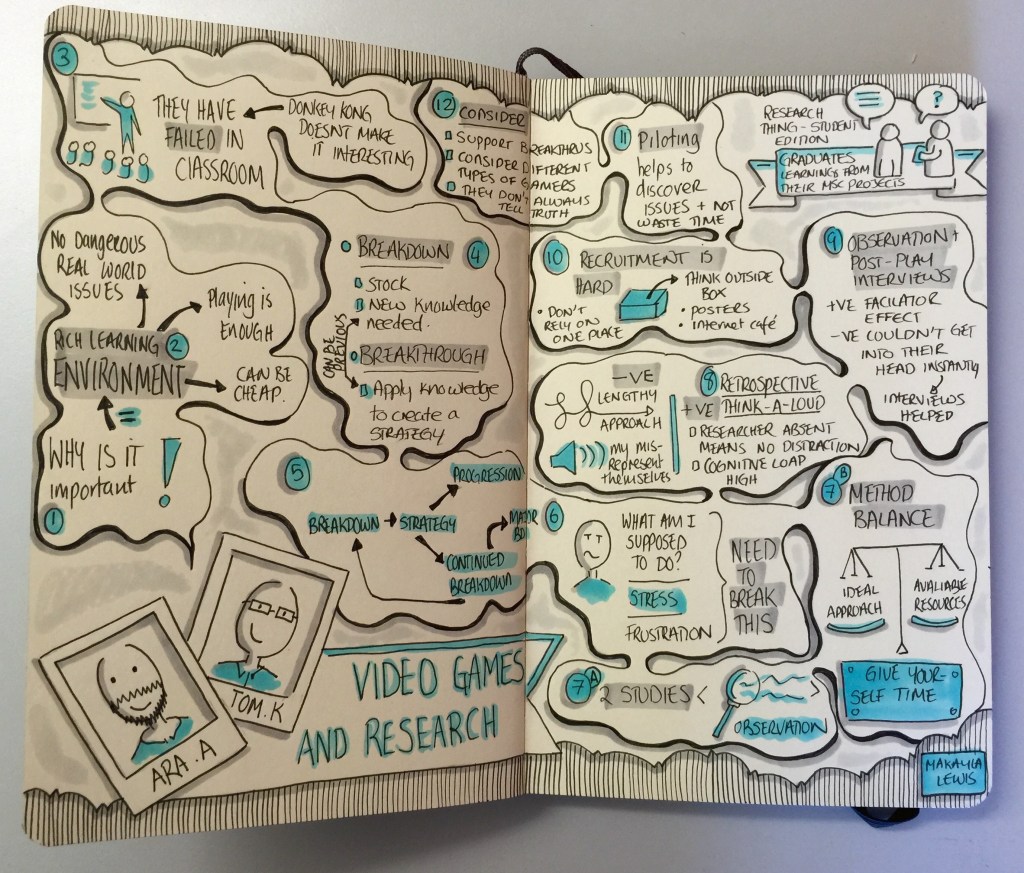 3
THEY HAVE
FAILED IN
CLASSROOM
DONKEY KONG
DOESNT MAKE
IT INTERESTING
NO DANGEROUS
REAL WORLD
ISSUES
Playing is
ENOUGH
RICH LEARNING 2
ENVIRONMENT
CAN BE
CHEAP.
=
WHY IS IT
important !
1
4
BREAKDOWN
STOCK
NEW KNOWLEDGE
needed.
CAN BE
PREVIOUS
BREAKTHROUGH
Apply knowledge
to create a
STRATEGY
5
PROGRESSION
BREAKDOWN
STRATEGY
MAJOR
BD
CONTINUED
BREAKDOWN
ARA.A
TOM.K
VIDEO GAMES
AND RESEARCH
12 CONSIDER
SUPPORT BREAKTHRUS
CONSIDER DIFFERENT
TYPES OF GAMERS
THEY DON'T ALWAYS
TELL TRUTH
11 Piloting
helps to
discover
ISSUES + NOT
WASTE TIME
RESEARCH
THING - STUDENT
EDITION
?
GRADUATES
LEARNINGS FROM
THEIR MSC PROJECTS
10 RECRUITMENT IS
HARD
• DON'T
RELY ON
ONE PLACE
THINK OUTSIDE
BOX
• POSTERS
• internet café
9 OBSERVATION +
POST-PLAY
INTERVIEWS
+VE FACILIATOR
EFFECT
-VE COULDN'T GET
INTO THEIR
HEAD INSTANTLY
INTERVIEWS
HELPED
-VE
LENGTHY
APPROACH
my mis-
represent
themselves
8 RETROSPECTIVE
+VE THINK-A-LOUD
RESEARCHER ABSENT
MEANS NO DISTRACTION
COGNITIVE LOAD
HIGH
6
WHAT AM I
SUPPOSED
TO DO?
STRESS
FRUSTRATION
NEED
TO
BREAK
THIS
7A
2 STUDIES <
OBSERVATION
7B
METHOD
BALANCE
IDEAL
APPROACH
AVALIABLE
RESOURCES
GIVE YOUR-
SELF TIME
MAKAYLA
LEWIS